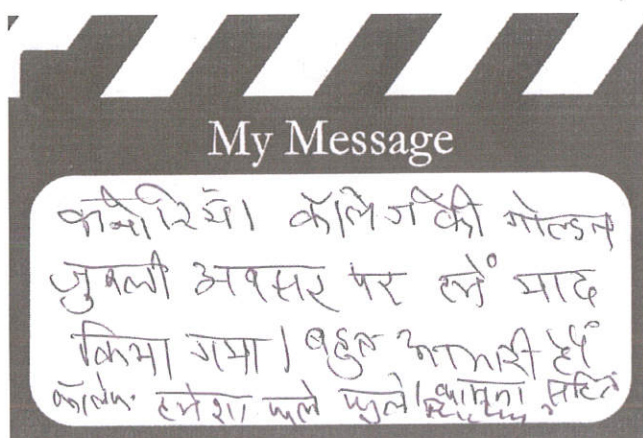 My Message
कनोरिया कॉलेज की गोल्डन
जुबली अवसर पर हमें याद
किया गया। बहुत आभारी हैं
कॉलेज हमेशा फले फुले। कामना सहित